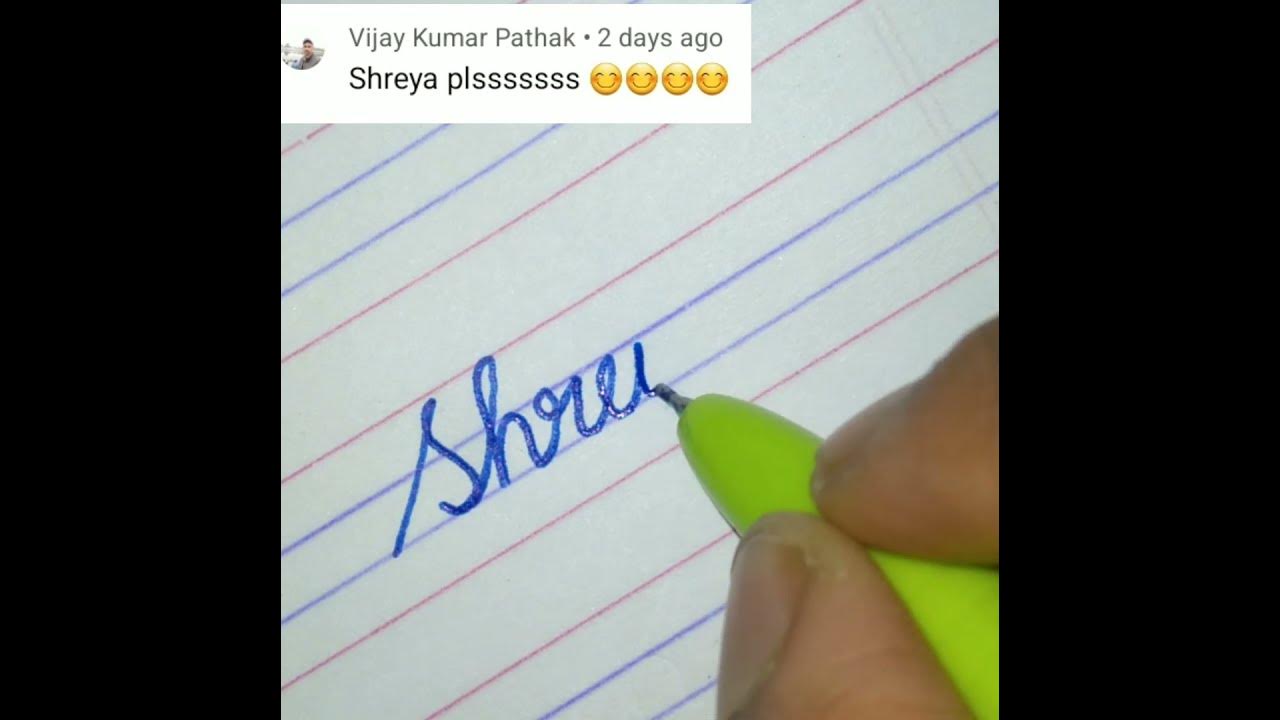 Vijay Kumar Pathak • 2 days ago
Shreya plsssssss 😊😊😊😊
Shreu